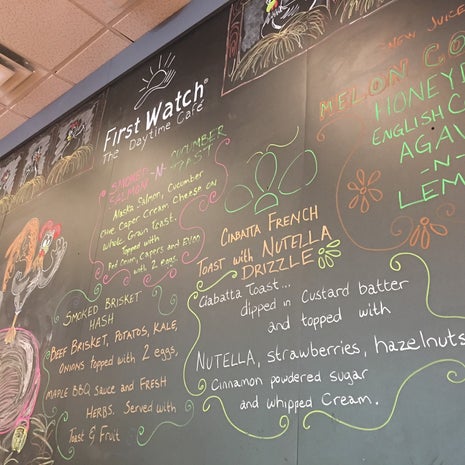 First Watch®
The Daytime Café
SMOKED SALMON -N- CUCUMBER TOAST
Alaska Salmon, Cucumber
Cream Cheese on
Whole Grain Toast.
Topped with
Red Onion, Capers and EVOO
with 2 eggs.
SMOKED BRISKET
HASH
BEEF BRISKET, POTATOES, KALE,
ONIONS topped with 2 eggs,
MAPLE BBQ sauce and FRESH
HERBS. Served with
Toast & Fruit
CIABATTA FRENCH
TOAST with NUTELLA
DRIZZLE
Ciabatta Toast...
dipped in Custard batter
and topped with
NUTELLA, strawberries, hazelnuts
Cinnamon powdered sugar
and whipped Cream.
NEW JUICE
MELON CO
HONEYD
ENGLISH C
AGAV
-N-
LEM